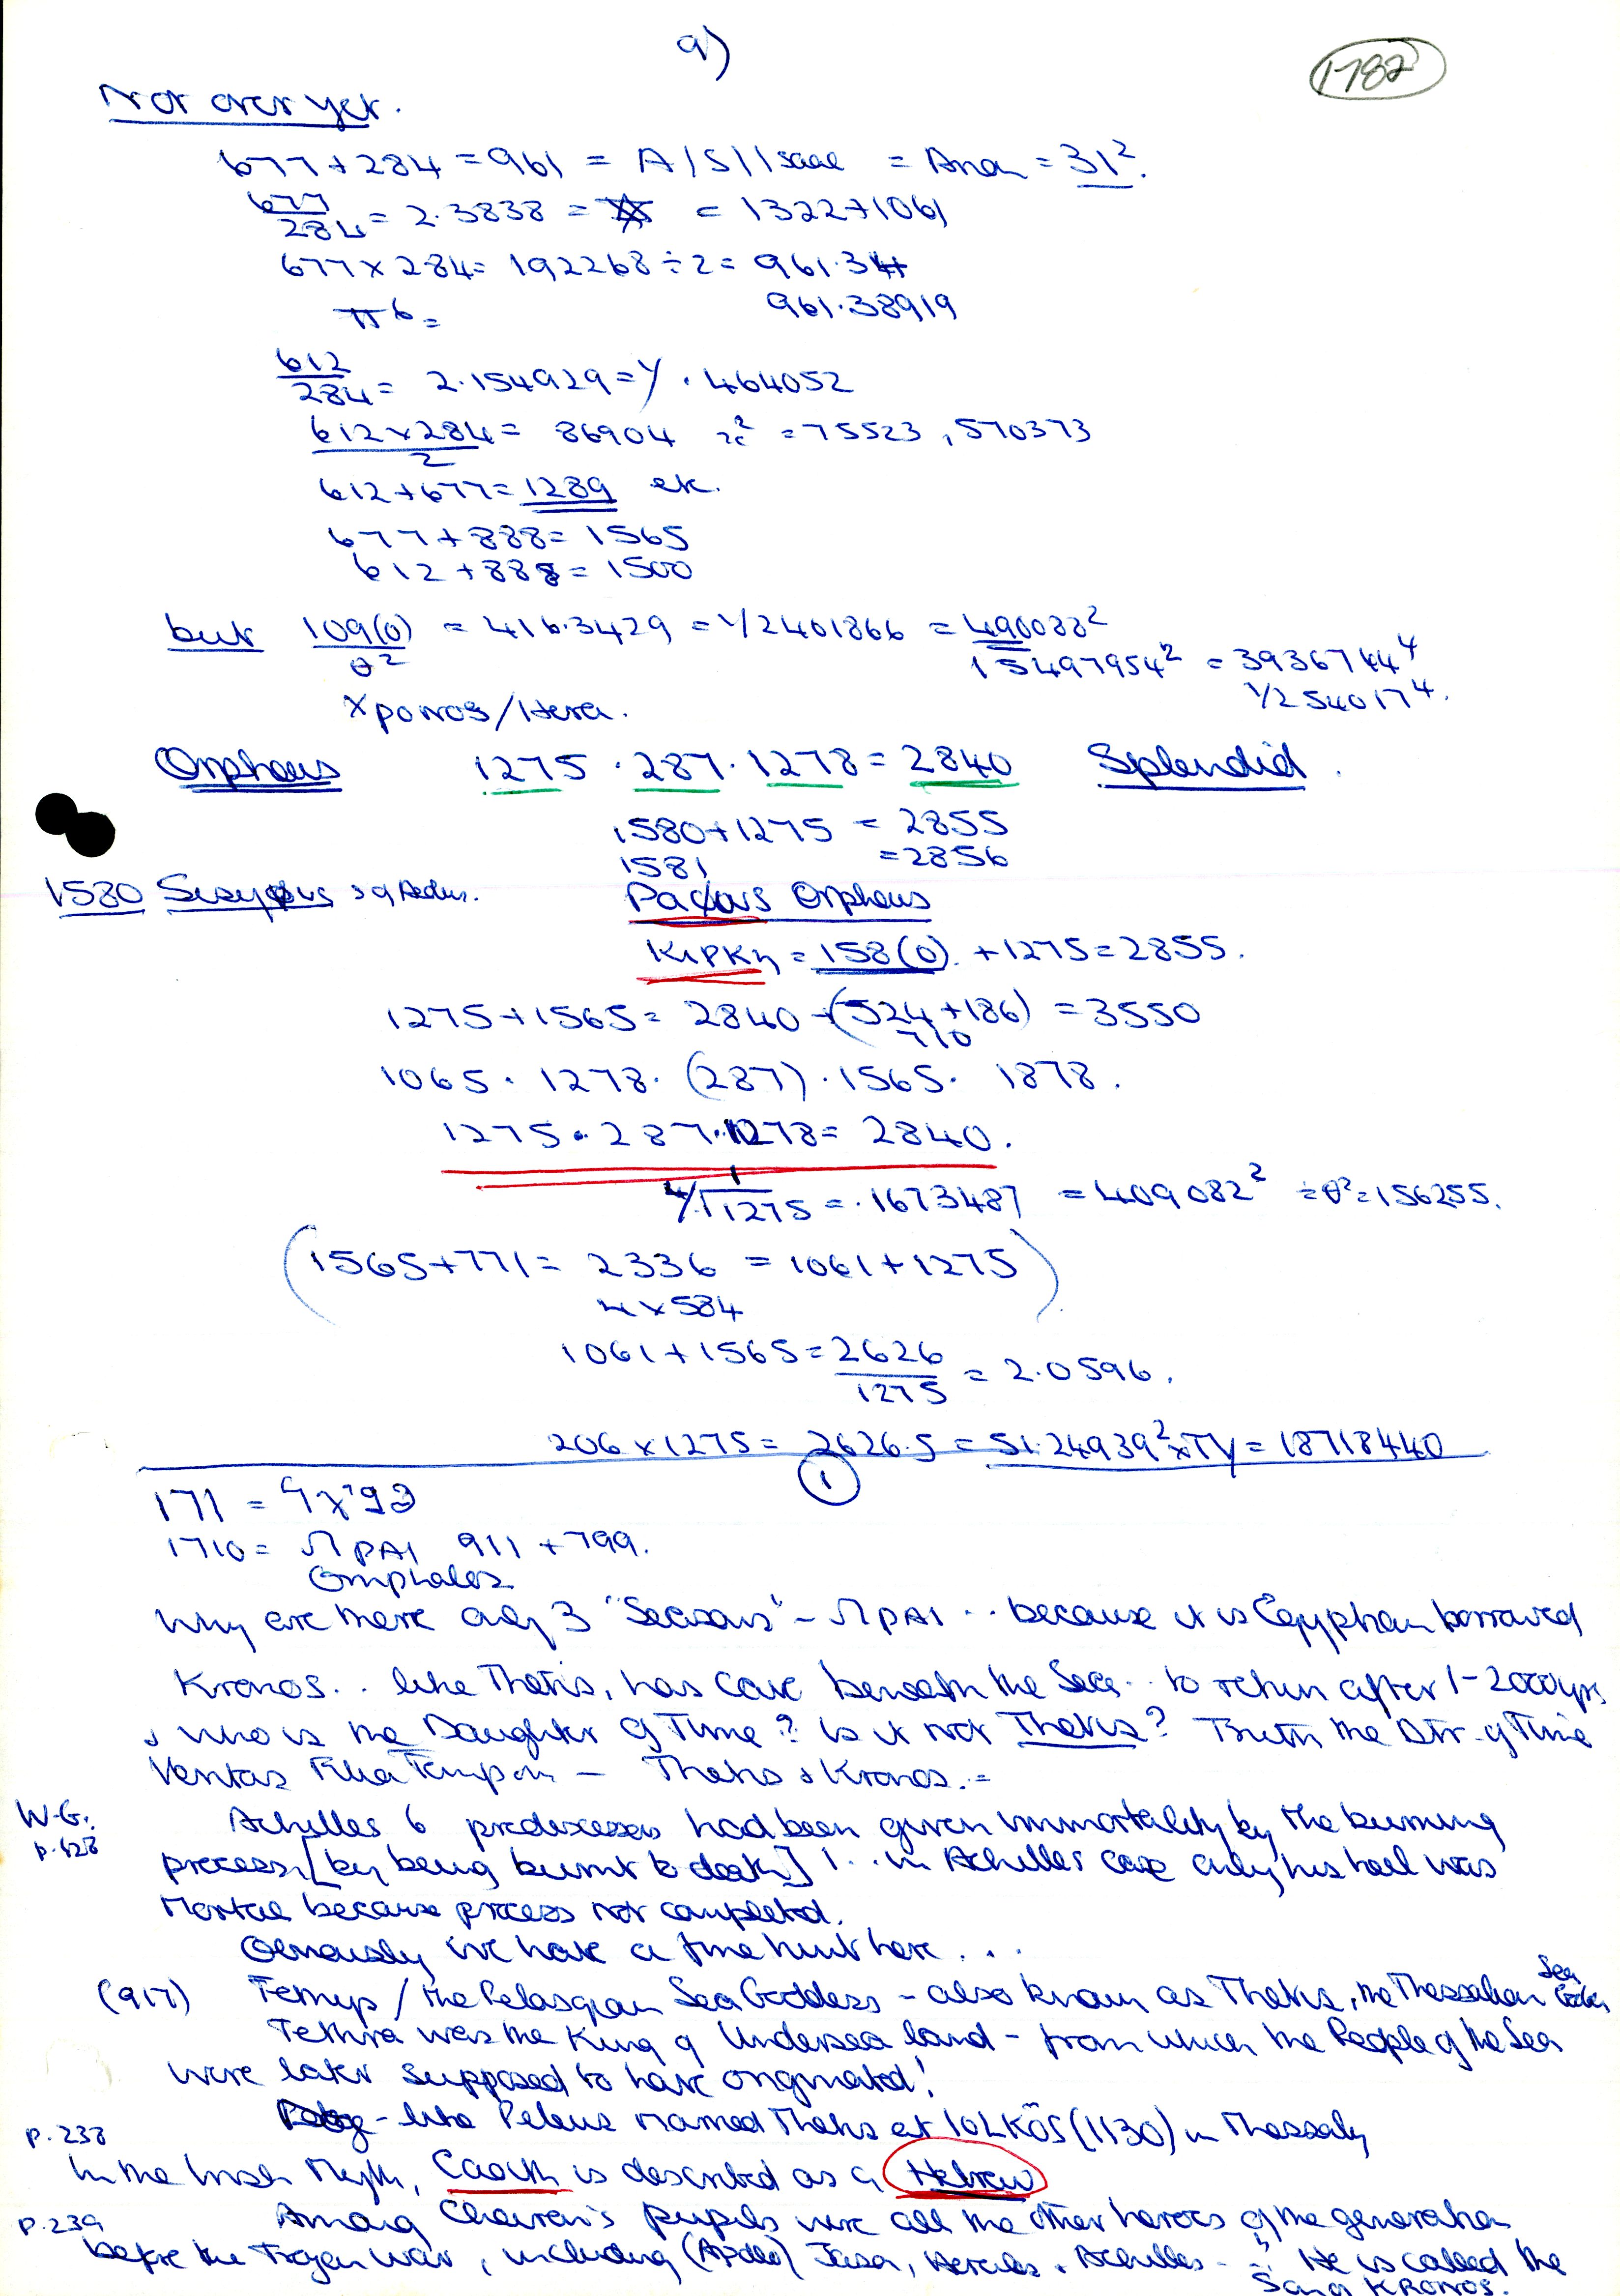 9)
1782
Not over yet.
677 + 284 = 961 = A/S/Isaac = Anan = 31².
677/284 = 2.3838 = = 1322 + 1061
677 x 284 = 192268 ÷ 2 = 961.34
π⁶ = 961.38919
612/284 = 2.154929 = 1/.464052
612 x 284/2 = 86904 x² = 75523,570373
612 + 677 = 1289 etc.
677 + 888 = 1565
612 + 888 = 1500
but 109(0)/θ² = 416.3429 = 1/2401866 = 490088²
15497954² = 3936744⁴
1/2540174.
Xρονος/Hera.
Orpheus 1275 . 287 . 1278 = 2840 Splendid.
1580 + 1275 = 2855
1581 = 2856
1580 Sisyphus
Orpheus
KιρKη = 158(0) + 1275 = 2855.
1275 + 1565 = 2840 + (524 + 186) = 3550
710
1065 . 1278 . (287) . 1565 . 1878.
1275 . 287 . 1278 = 2840.
4/√1275 = .1673487 = 409082² ÷ θ² = 156255.
(1565 + 771 = 2336 = 1061 + 1275)
4 x 584
1061 + 1565 = 2626/1275 = 2.0596.
206 x 1275 = 2626.5 = 51.24939² x TY = 18718440
1
171 =
1710 = ΩPAI 911 + 799.
Omphalos
Why are there only 3 "Seasons" - ΩPAI .. because it is Egyptian borrowed
Kronos .. like Thetis, has cave beneath the Sea .. to return after 1-2000 yrs
& who is the Daughter of Time? Is it not Thetis? Truth the Dtr. of Time
Veritas Filia Temporis - Thetis & Kronos.=
W.G. p.128 Achilles 6 predecessors had been given immortality by the burning
process [by being burnt to death]! .. in Achilles case only his heel was
Mortal because process not completed.
Obviously we have a time hint here ...
(917) / the Pelasgian Sea Goddess - also known as Thetis, the Thessalian Sea Goddess
Tethra was the King of Undersea land - from which the People of the Sea
were later supposed to have originated!
- like Peleus married Thetis at IOLKŌS (1130) in Thessaly
p.238
In the Irish Myth, is described as a Hebrew
p.239 Among Cheiron's pupils were all the other heroes of the generation
before the Trojan War, including (Apollo) Jason, Hercules, Achilles - He is called the
Son of KRONOS.